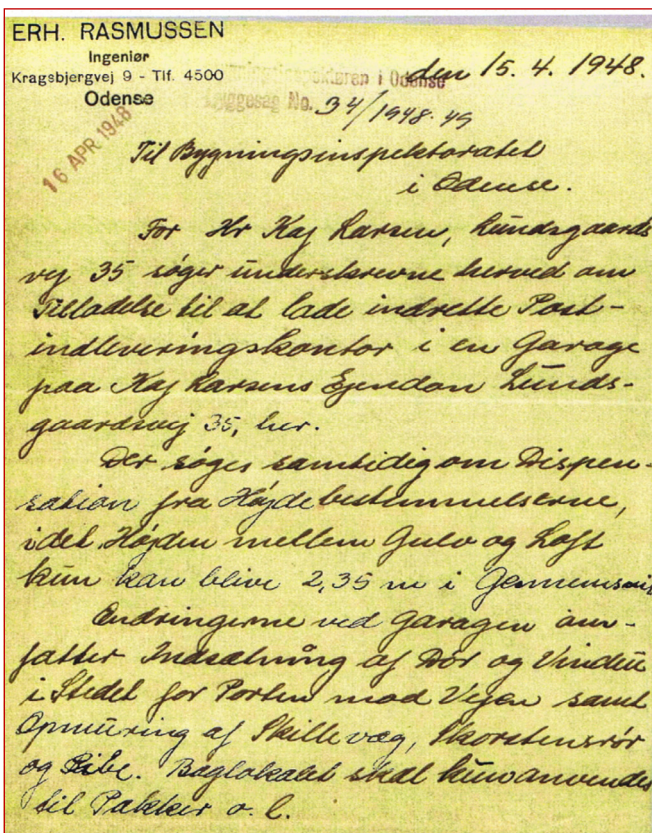 ERH. RASMUSSEN
Ingeniør
Kragsbjergvej 9 - Tlf. 4500
Odense
den 15. 4. 1948.
Bygningsinspektøren i Odense
Byggesag No. 34/1948-49
16 APR. 1948
Til Bygningsinspektoratet
i Odense.
For Hr Kaj Larsen, Lundsgaards
vej 35 søger underskrevne herved om
Tilladelse til at lade indrette Post-
indleveringskontor i en Garage
paa Kaj Larsens Ejendom Lunds-
gaardsvej 35, her.
Der søges samtidig om Dispen-
sation fra Højdebestemmelserne,
idet Højden mellem Gulv og Loft
kun kan blive 2,35 m i Gennemsnit
Ændringerne ved Garagen om-
fatter Indsætning af Dør og Vindue
i Stedet for Porten mod Vejen samt
Opmuring af Skillevæg, Skorstensrør
og Pibe. Baglokalet skal kun anvendes
til Pakker o. l.